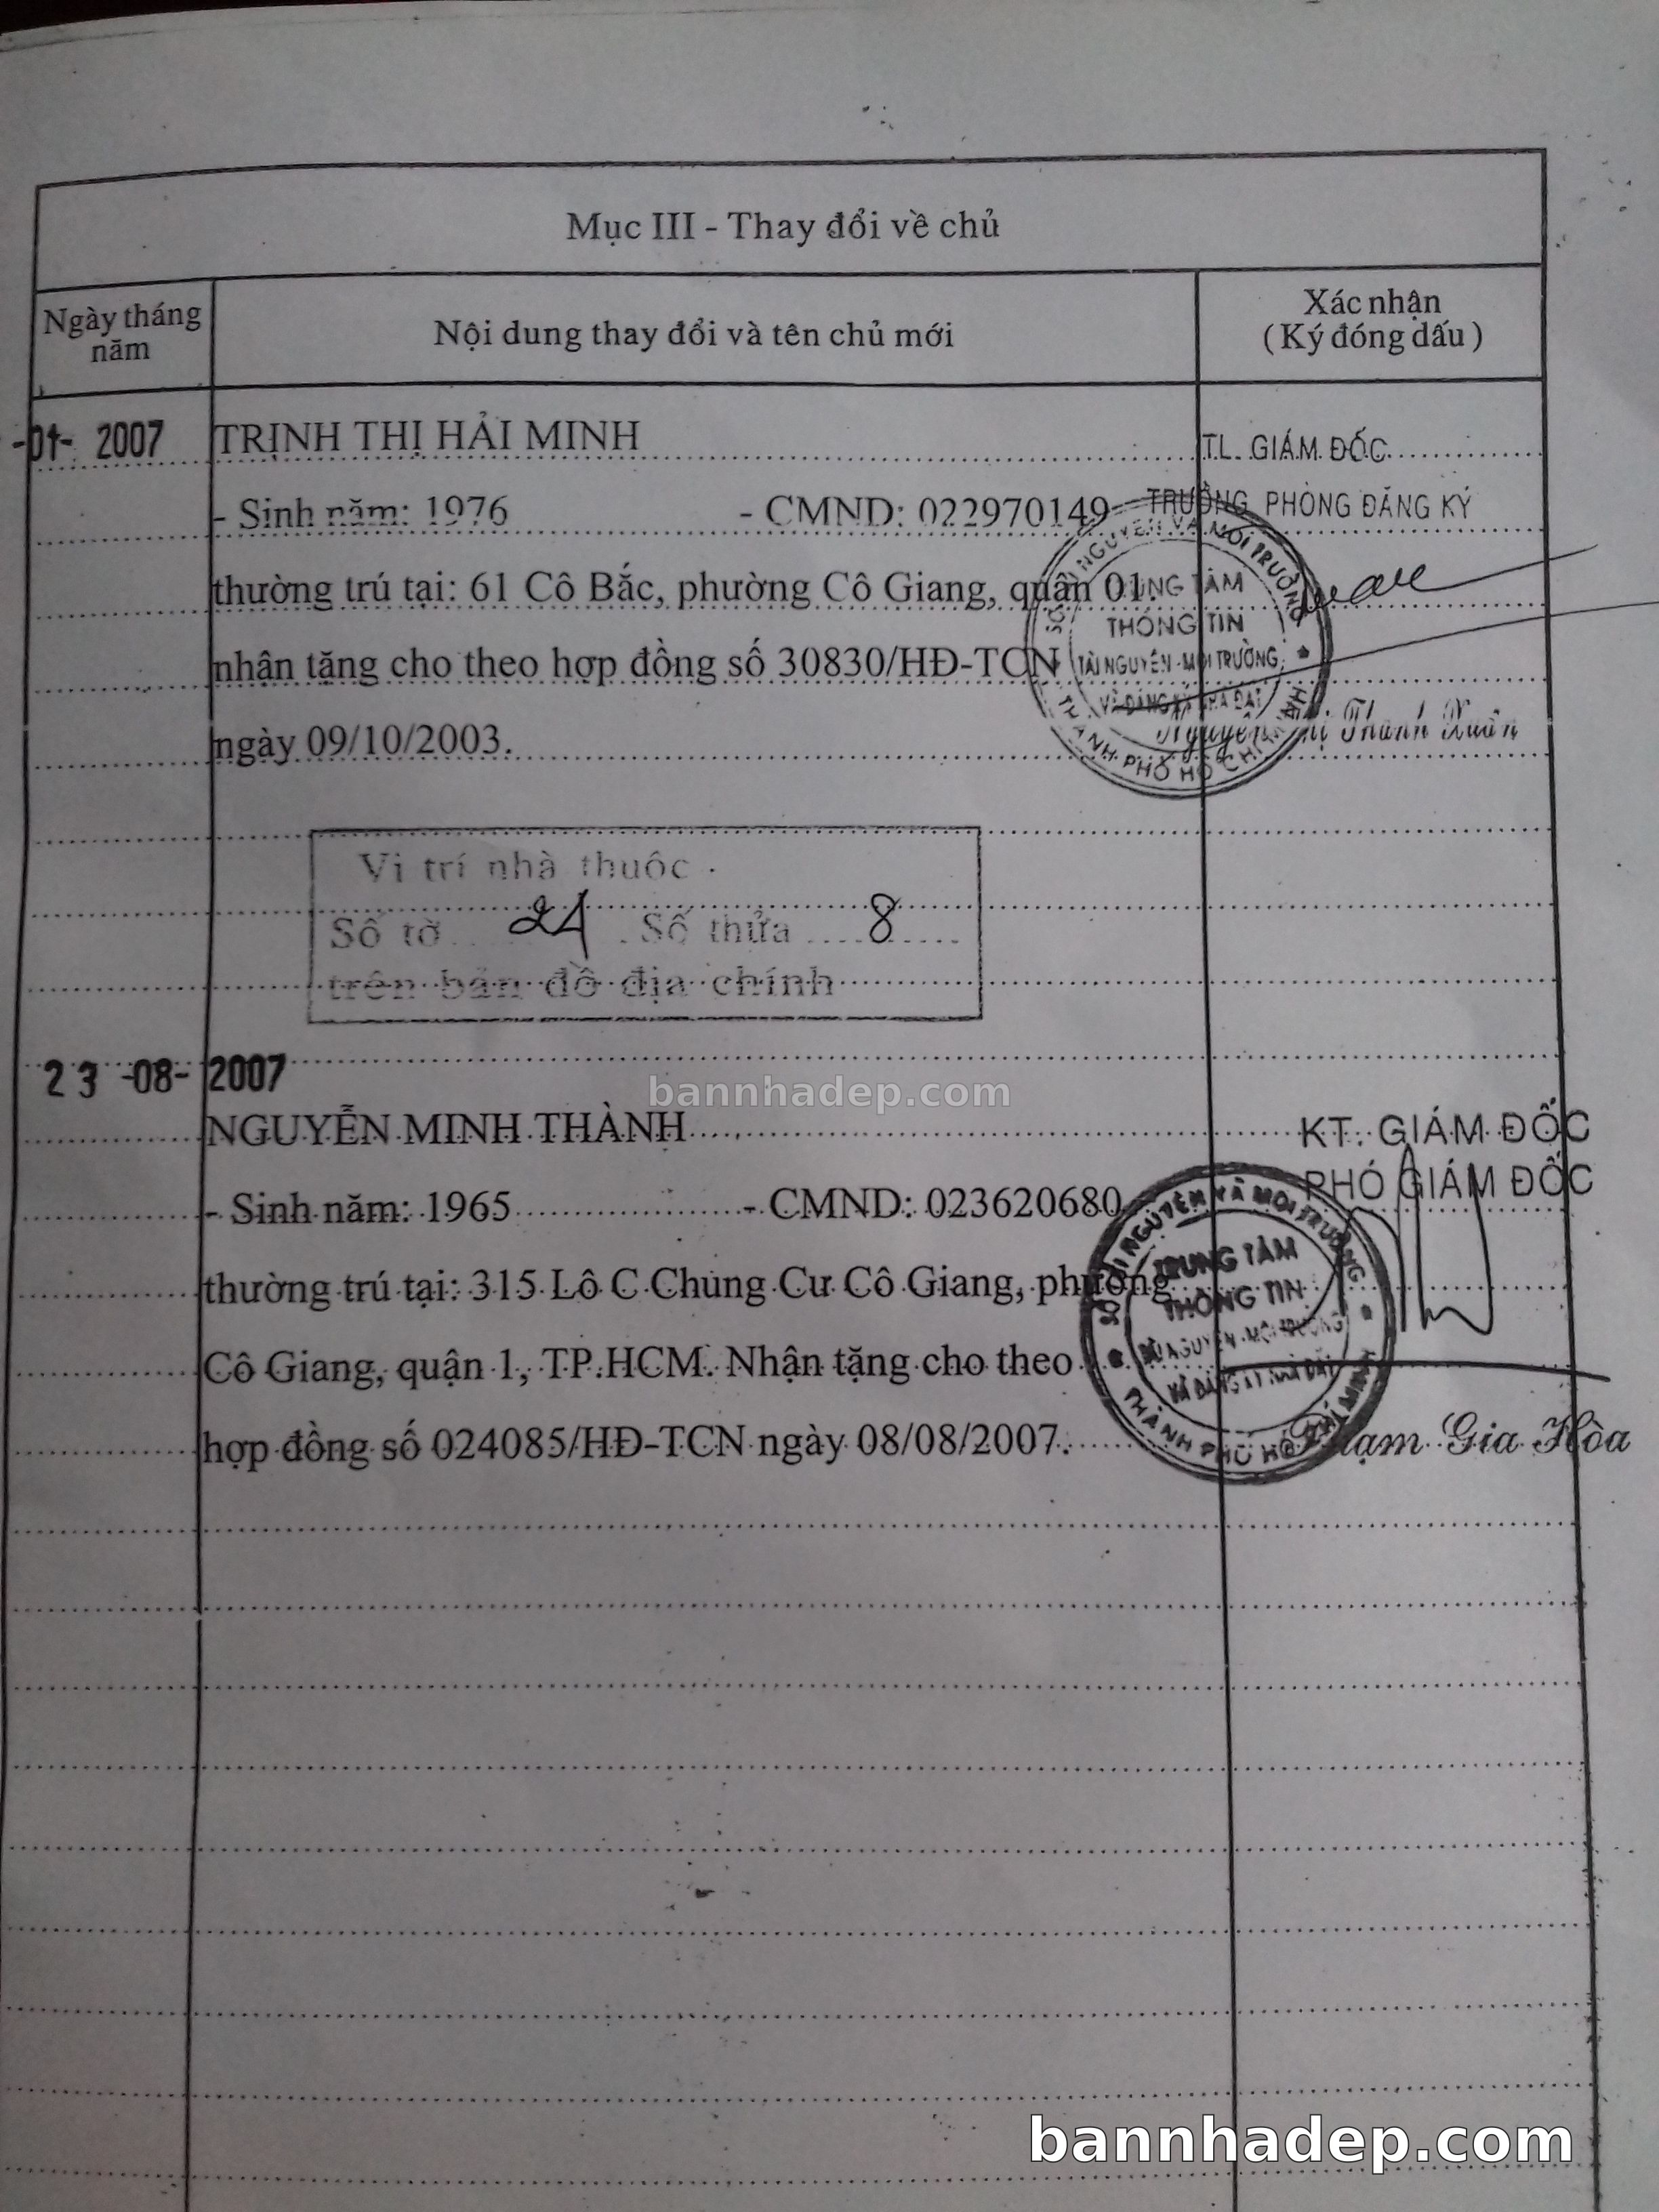 Mục III - Thay đổi về chủ
Ngày tháng năm
Nội dung thay đổi và tên chủ mới
Xác nhận
( Ký đóng dấu )
-01- 2007
TRỊNH THỊ HẢI MINH
TL. GIÁM ĐỐC
- Sinh năm: 1976 - CMND: 022970149
TRƯỞNG PHÒNG ĐĂNG KÝ
thường trú tại: 61 Cô Bắc, phường Cô Giang, quận 01
nhận tặng cho theo hợp đồng số 30830/HĐ-TCN
ngày 09/10/2003.
TRUNG TÂM
THÔNG TIN
TÀI NGUYÊN - MÔI TRƯỜNG
VÀ ĐĂNG KÝ NHÀ ĐẤT
THÀNH PHỐ HỒ CHÍ MINH
Nguyễn Thị Thanh Xuân
Vị trí nhà thuộc
Số tờ 24 Số thửa 8
trên bản đồ địa chính
23 -08- 2007
bannhadep.com
NGUYỄN MINH THÀNH
KT. GIÁM ĐỐC
PHÓ GIÁM ĐỐC
- Sinh năm: 1965 - CMND: 023620680
thường trú tại: 315 Lô C Chung Cư Cô Giang, phường
Cô Giang, quận 1, TP.HCM. Nhận tặng cho theo
hợp đồng số 024085/HĐ-TCN ngày 08/08/2007.
TRUNG TÂM
THÔNG TIN
TÀI NGUYÊN - MÔI TRƯỜNG
VÀ ĐĂNG KÝ NHÀ ĐẤT
THÀNH PHỐ HỒ CHÍ MINH
Phạm Gia Hòa
bannhadep.com